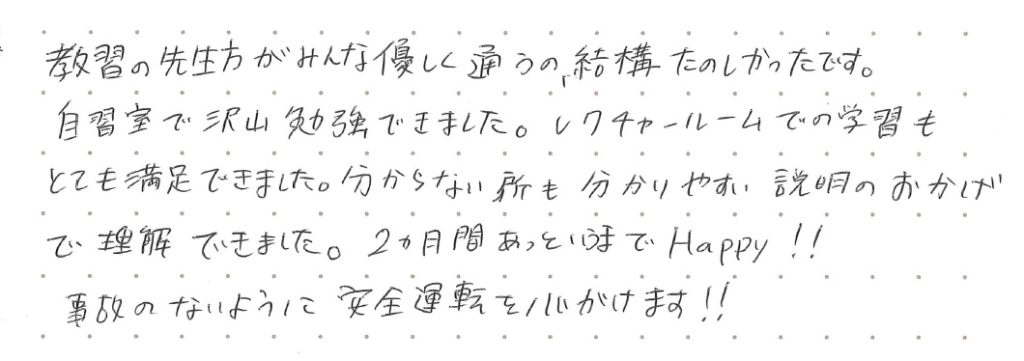 教習の先生方がみんな優しく通うの、結構たのしかったです。
自習室で沢山勉強できました。レクチャールームでの学習も
とても満足できました。分からない所も分かりやすい説明のおかげ
で理解できました。2カ月間あっというまでHappy!!
事故のないように安全運転を心がけます!!